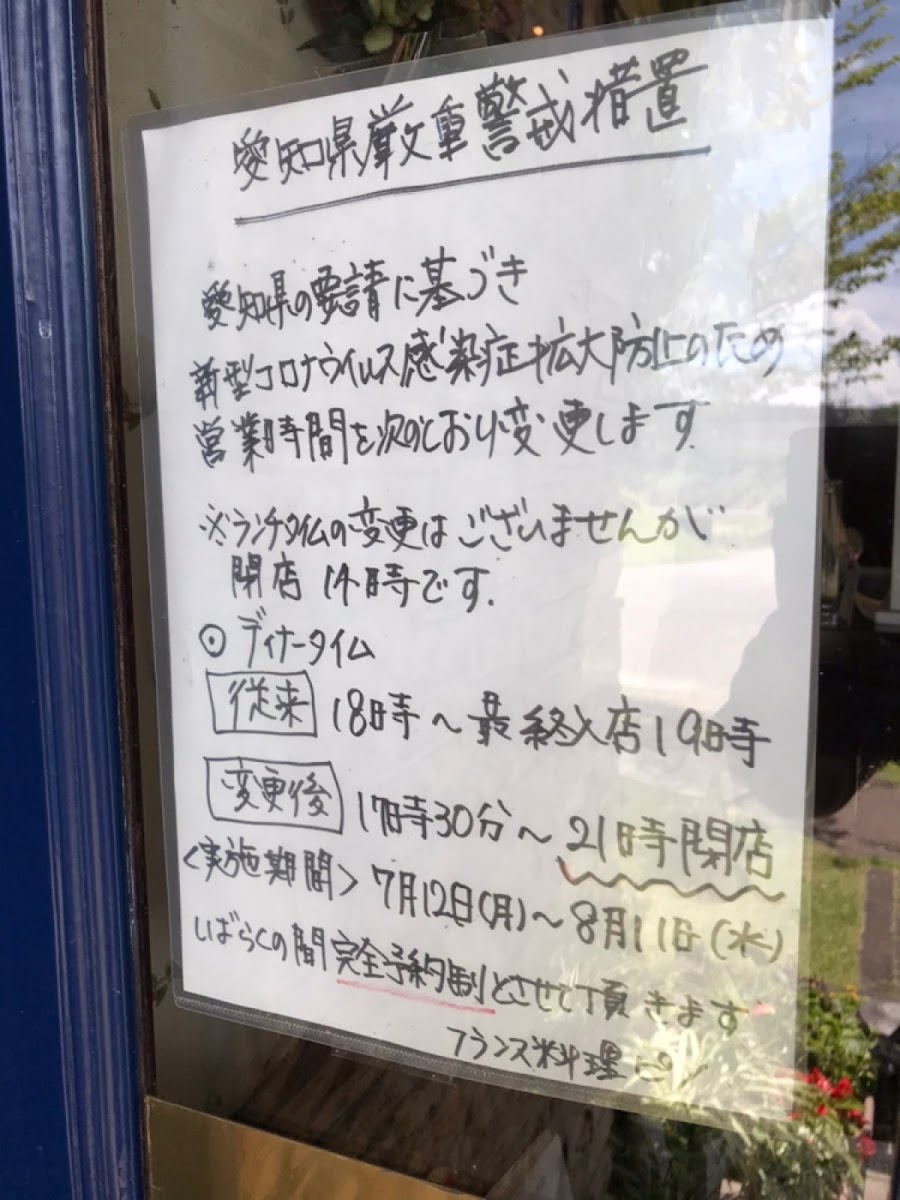 愛知県厳重警戒措置
愛知県の要請に基づき
新型コロナウイルス感染症拡大防止のため
営業時間を次のとおり変更します
※ランチタイムの変更はございませんが
閉店 14時です.
⊙ ディナータイム
従来 18時〜最終入店19時
変更後 17時30分〜21時閉店
<実施期間> 7月12日(月)〜8月11日(水)
しばらくの間完全予約制とさせて頂きます
フランス料理